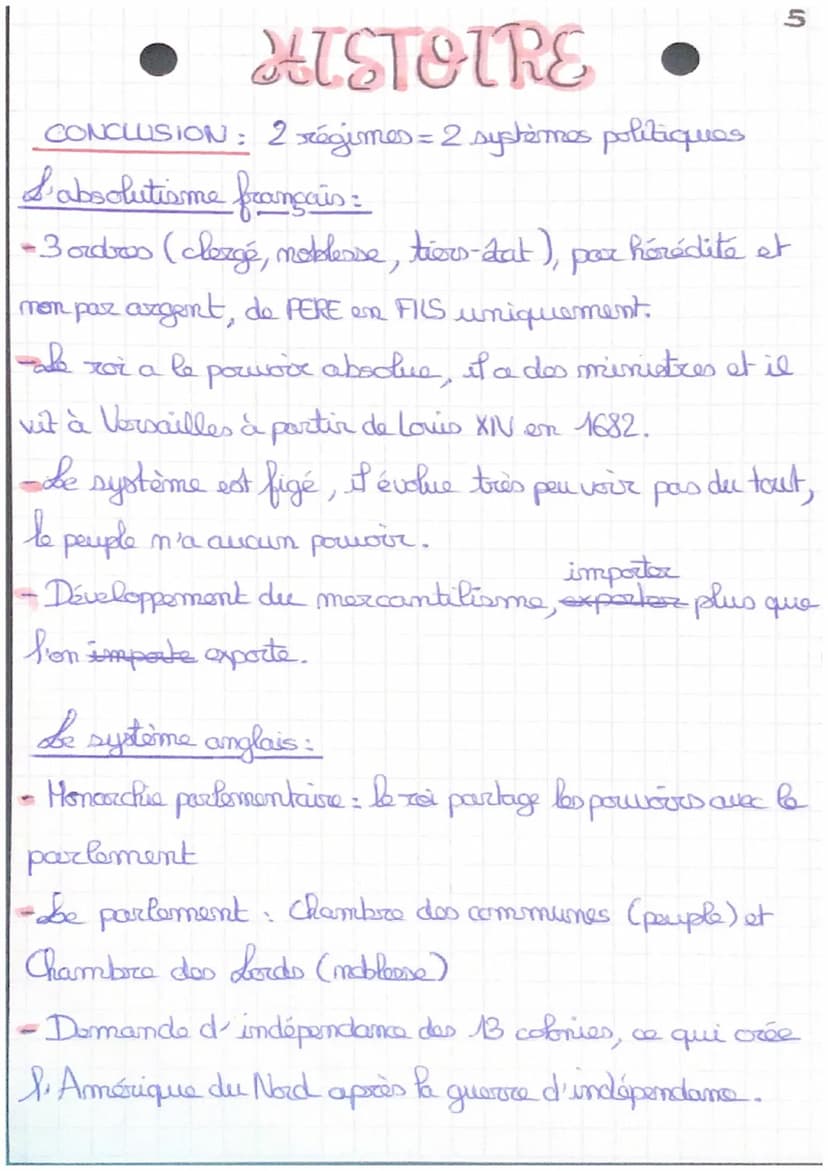 5
HISTOIRE
CONCLUSION : 2 régimes = 2 systèmes politiques
L'absolutisme français :
- 3 ordres (clergé, noblesse, tiers-état), par hérédité et
non par argent, de PERE en FILS uniquement.
- Le roi a le pouvoir absolue, il a des ministres et il
vit à Versailles à partir de Louis XIV en 1682.
- Le système est figé, il évolue très peu voir pas du tout,
le peuple n'a aucun pouvoir.
importer
- Développement du mercantilisme, exporter plus que
l'on importe exporte.
Le système anglais :
- Monarchie parlementaire : le roi partage les pouvoirs avec le
parlement
- Le parlement : Chambre des communes (peuple) et
Chambre des Lords (noblesse)
- Demande d'indépendance des 13 colonies, ce qui crée
l'Amérique du Nord après la guerre d'indépendance.